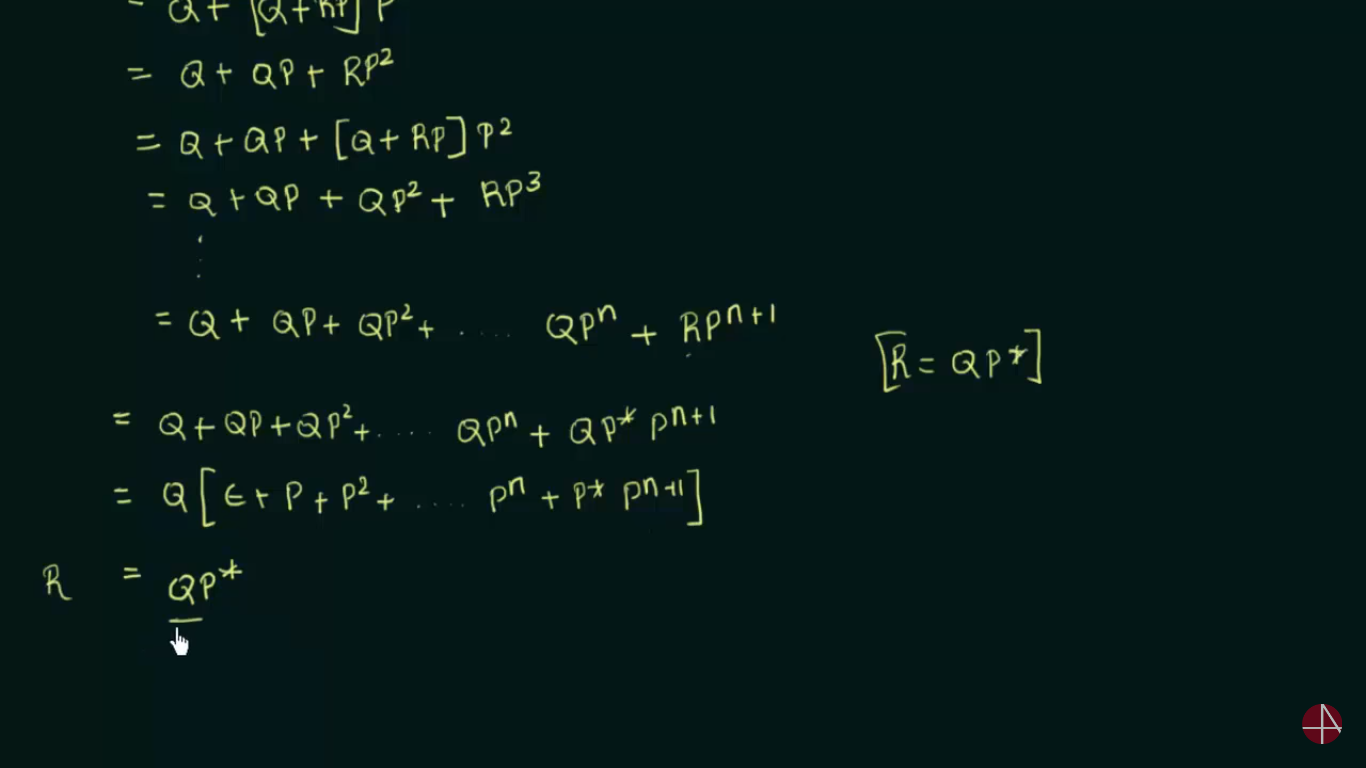 = Q + [Q + RP] P
= Q + QP + RP²
= Q + QP + [Q + RP] P²
= Q + QP + QP² + RP³
⋮
= Q + QP + QP² + ..... QPⁿ + RPⁿ⁺¹
[R = QP*]
= Q + QP + QP² + ..... QPⁿ + QP* Pⁿ⁺¹
= Q [ϵ + P + P² + ..... Pⁿ + P* Pⁿ⁺¹]
R = QP*